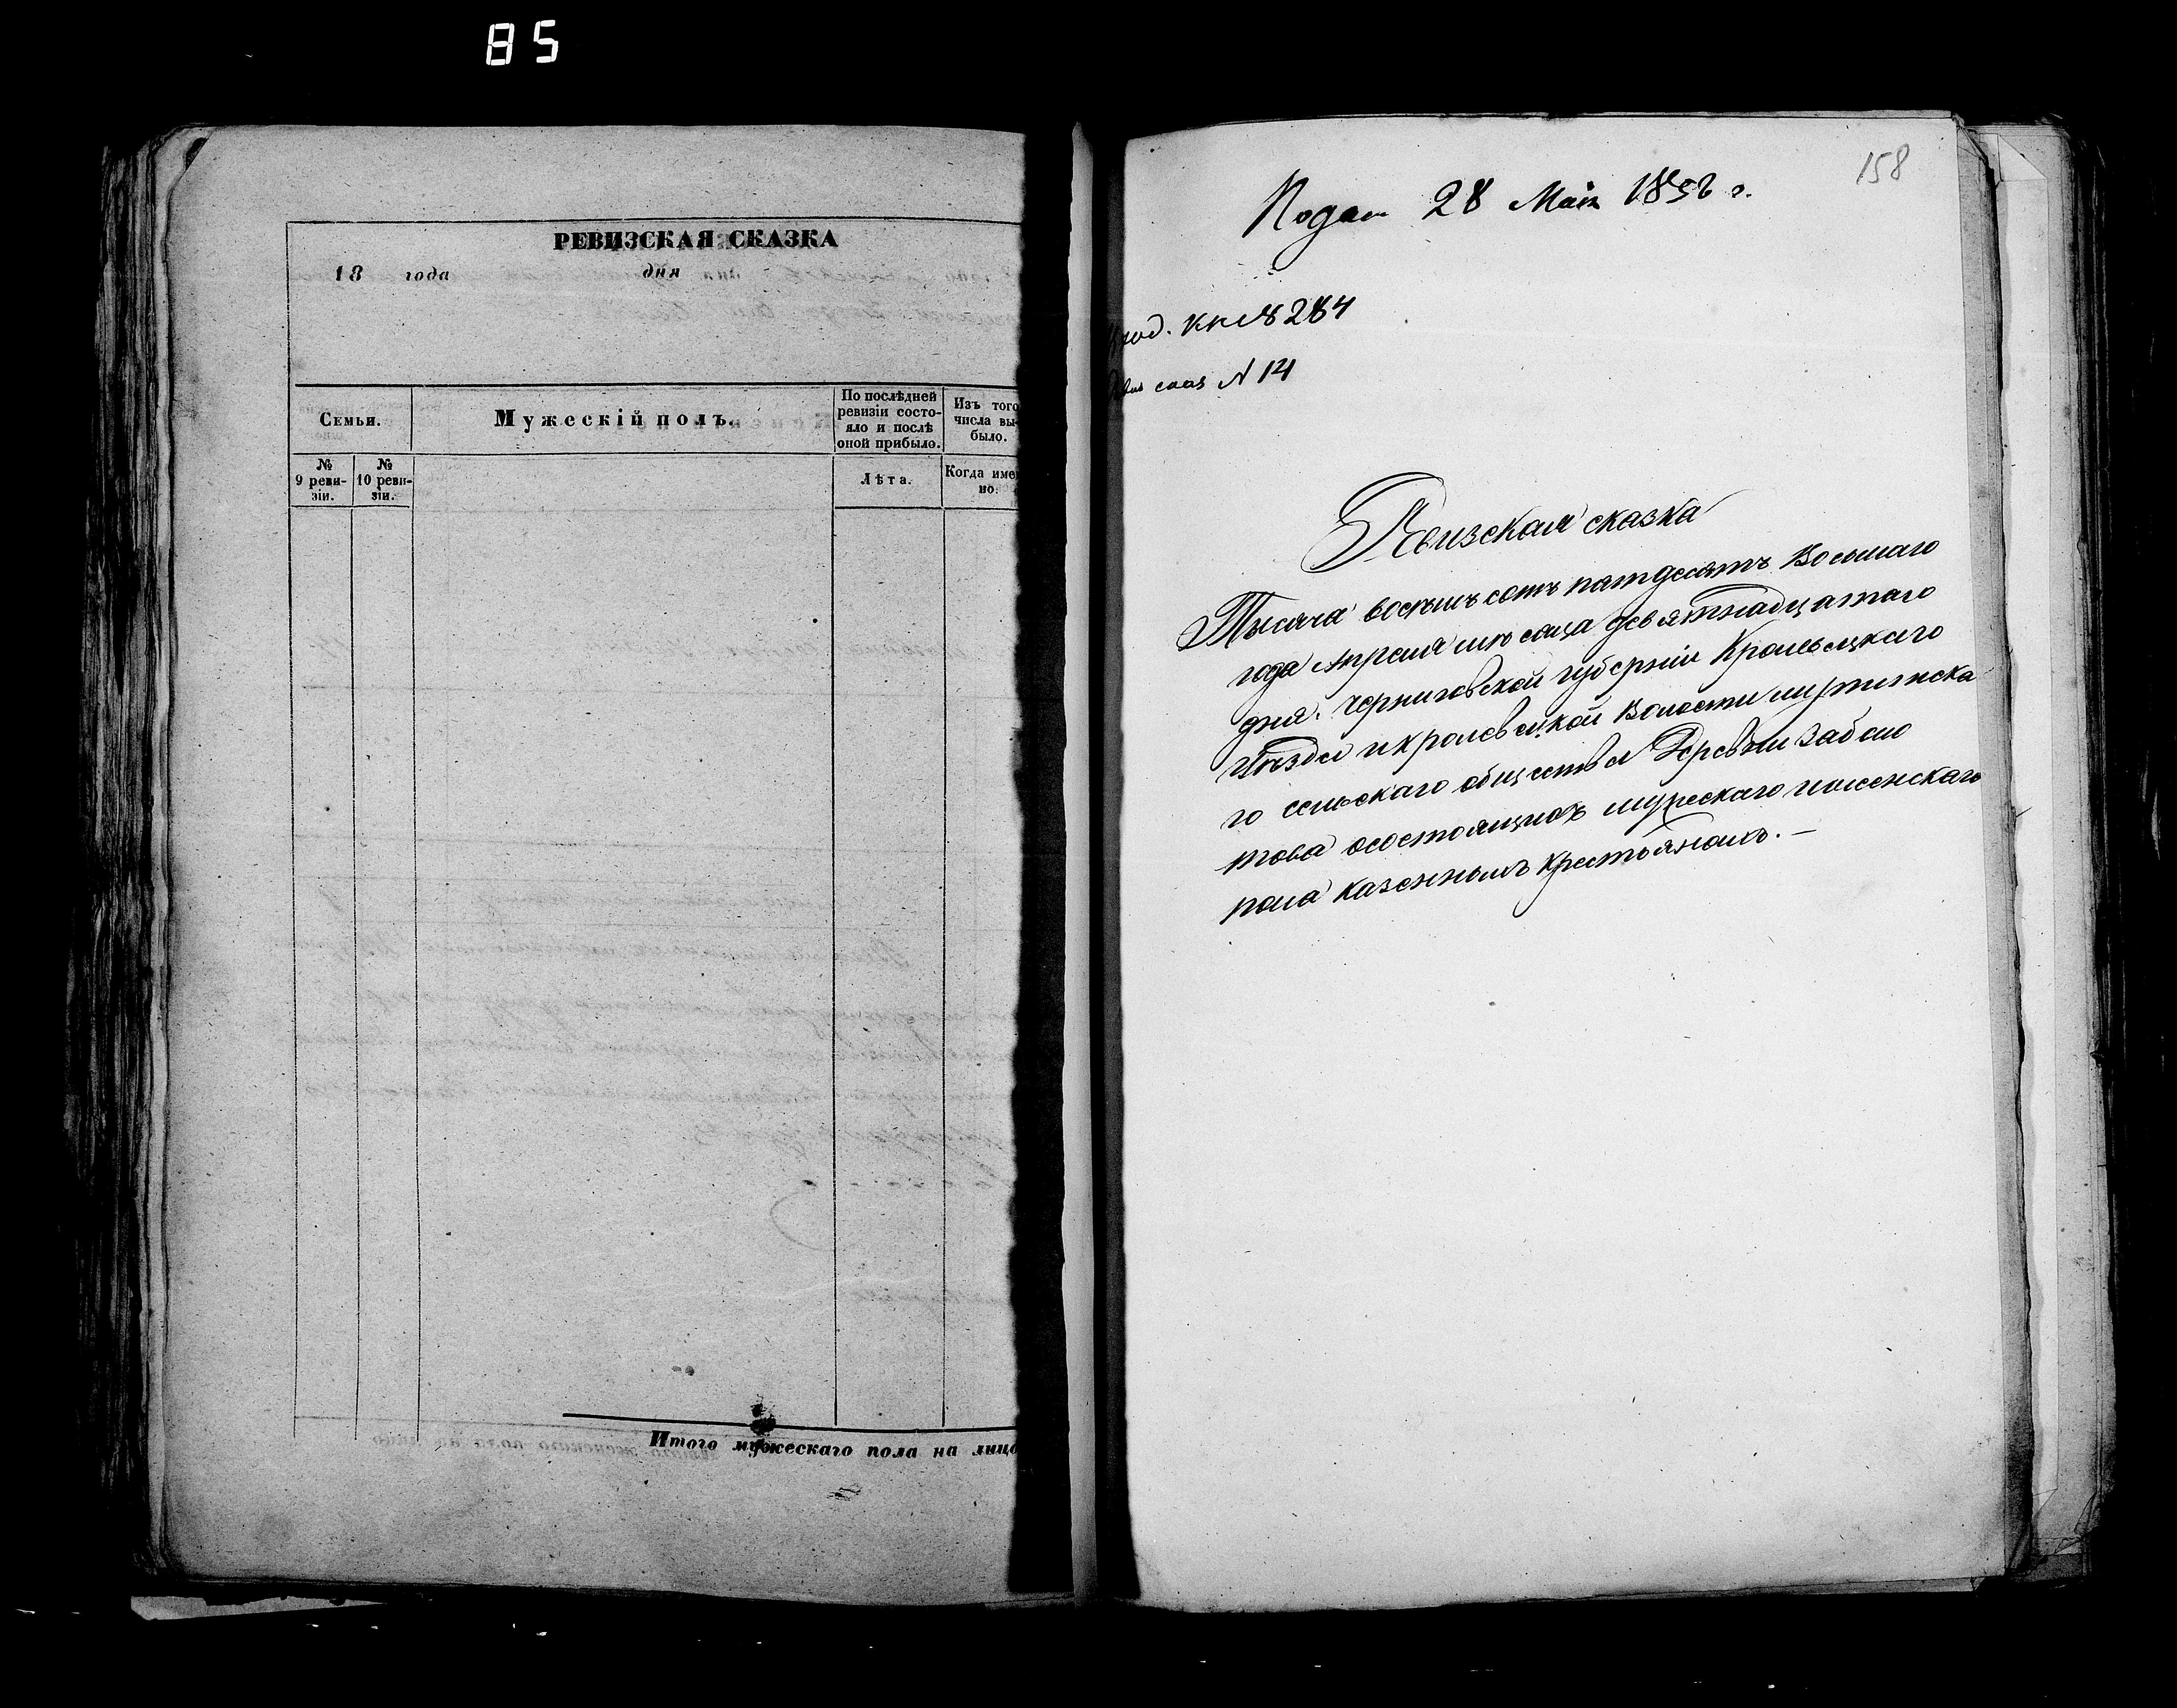 85
РЕВИЗСКАЯ СКАЗКА
18 года дня
Семьи.
Мужескій полъ.
По послѣдней ревизіи состояло и послѣ оной прибыло.
Изъ того числа выбыло.
№ 9 ревизіи.
№ 10 ревизіи.
Лѣта.
Когда имено.
Итого мужескаго пола на лицо
158
Подан 28 Мая 1858 г.
284
сказ N 14
Ревизская сказка
Тысяча восемьсотъ пятдесятъ Восьмаго
года Апреля мѣсяца девятнадцатаго
дня. Черниговской губерніи Кролевецкаго
уѣзда и кролевецкой Волости
го сельскаго общества Деревни Забело
това осостоящихъ мужескаго иженскаго
пола казенныхъ крестьянахъ.—